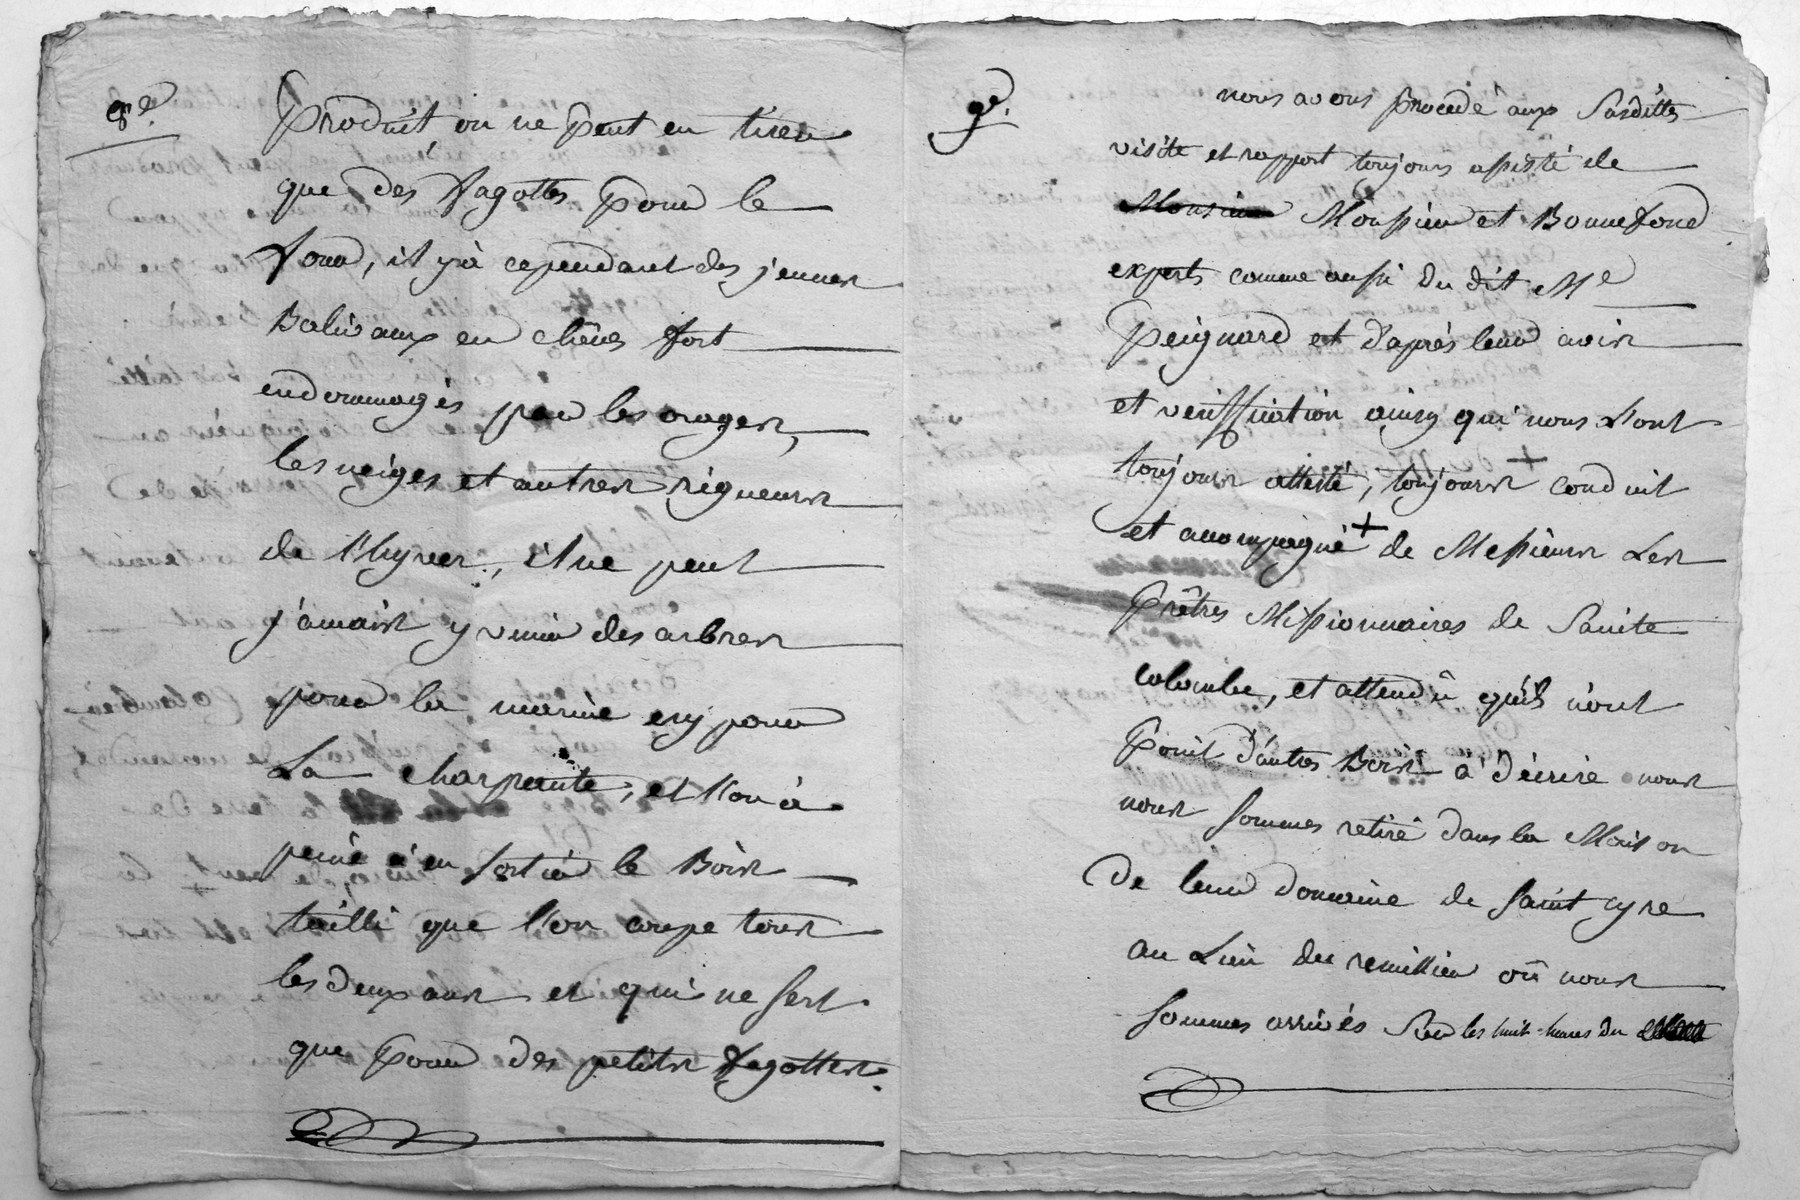 8e.
Produit on ne peut en tirer
que des fagottes pour le
four, il y à cependant des jeunes
Balivaux en chênes fort
endommagés par les orages,
les neiges et autres rigueurs
de l'hyver, il ne peut
j'amais y venir des arbres
pour la marine ny pour
La charpente, et l'on à
peine à en sortir le Bois
tailli que l'on coupe tous
les deux ans et qui ne sert
que pour des petits fagottes.
9e.
nous avons procedé aux Sasdittes
visite et rapport toujours assisté de
Monsieur Moussieu et Bonnefond
experts comme aussi du dit Me
Peignard et d'après leur avis
et veriffication ainsy qui nous L'ont
toujours attesté, toujours + conduit
et acompagné + de Messieurs Les
Prêtres Missionnaires de Sainte
colombe, et attendû qu'ils n'ont
point d'autres Bois à décrire nous
nous sommes retiré dans la Maison
De leur domaine de saint cyre
au Lieu du remillieu où nous
sommes arrivés Sur les huit heures du